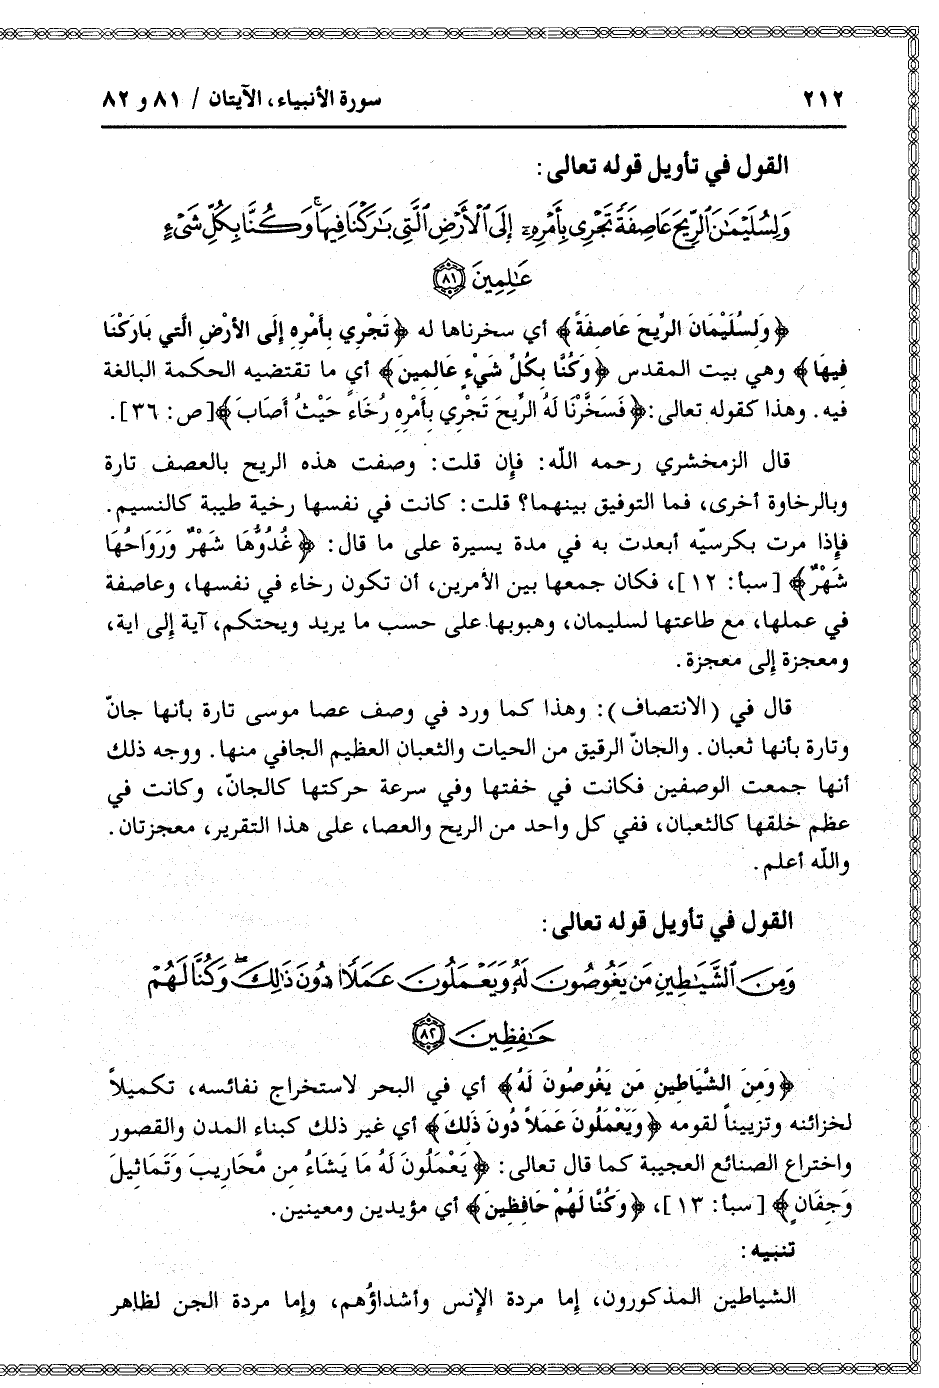 ٢١٢ سورة الأنبياء، الآيتان / ٨١ و ٨٢
القول في تأويل قوله تعالى:
وَلِسُلَيْمَٰنَ ٱلرِّيحَ عَاصِفَةً تَجْرِى بِأَمْرِهِۦٓ إِلَى ٱلْأَرْضِ ٱلَّتِى بَٰرَكْنَا فِيهَا ۚ وَكُنَّا بِكُلِّ شَىْءٍ
عَٰلِمِينَ ٨١
﴿وَلِسُلَيْمَانَ الرِّيحَ عَاصِفَةً﴾ أي سخرناها له ﴿تَجْرِي بِأَمْرِهِ إِلَى الأَرْضِ الَّتي بَارَكْنَا
فِيهَا﴾ وهي بيت المقدس ﴿وَكُنَّا بِكُلِّ شَيْءٍ عَالِمِينَ﴾ أي ما تقتضيه الحكمة البالغة
فيه. وهذا كقوله تعالى: ﴿فَسَخَّرْنَا لَهُ الرِّيحَ تَجْرِي بِأَمْرِهِ رُخَاءً حَيْثُ أَصَابَ﴾ [ص: ٣٦].
قال الزمخشري رحمه الله: فإِن قلت: وصفت هذه الريح بالعصف تارة
وبالرخاوة أخرى، فما التوفيق بينهما؟ قلت: كانت في نفسها رخية طيبة كالنسيم.
فإذا مرت بكرسيّه أبعدت به في مدة يسيرة على ما قال: ﴿غُدُوُّهَا شَهْرٌ وَرَوَاحُهَا
شَهْرٌ﴾ [سبأ: ١٢]، فكان جمعها بين الأمرين، أن تكون رخاء في نفسها، وعاصفة
في عملها، مع طاعتها لسليمان، وهبوبها على حسب ما يريد ويحتكم، آية إلى آية،
ومعجزة إلى معجزة.
قال في (الانتصاف): وهذا كما ورد في وصف عصا موسى تارة بأنها جانّ
وتارة بأنها ثعبان. والجانّ الرقيق من الحيات والثعبان العظيم الجافي منها. ووجه ذلك
أنها جمعت الوصفين فكانت في خفتها وفي سرعة حركتها كالجانّ، وكانت في
عظم خلقها كالثعبان، ففي كل واحد من الريح والعصا، على هذا التقرير، معجزتان.
والله أعلم.
القول في تأويل قوله تعالى:
وَمِنَ ٱلشَّيَٰطِينِ مَن يَغُوصُونَ لَهُۥ وَيَعْمَلُونَ عَمَلًا دُونَ ذَٰلِكَ ۖ وَكُنَّا لَهُمْ
حَٰفِظِينَ ٨٢
﴿وَمِنَ الشَّيَاطِينِ مَن يَغُوصُونَ لَهُ﴾ أي في البحر لاستخراج نفائسه، تكميلاً
لخزائنه وتزييناً لقومه ﴿وَيَعْمَلُونَ عَمَلاً دُونَ ذَلِكَ﴾ أي غير ذلك كبناء المدن والقصور
واختراع الصنائع العجيبة كما قال تعالى: ﴿يَعْمَلُونَ لَهُ مَا يَشَاءُ مِن مَّحَارِيبَ وَتَمَاثِيلَ
وَجِفَانٍ﴾ [سبأ: ١٣]، ﴿وَكُنَّا لَهُمْ حَافِظِينَ﴾ أي مؤيدين ومعينين.
تنبيه:
الشياطين المذكورون، إما مردة الإنس وأشداؤُهم، وإما مردة الجن لظاهر